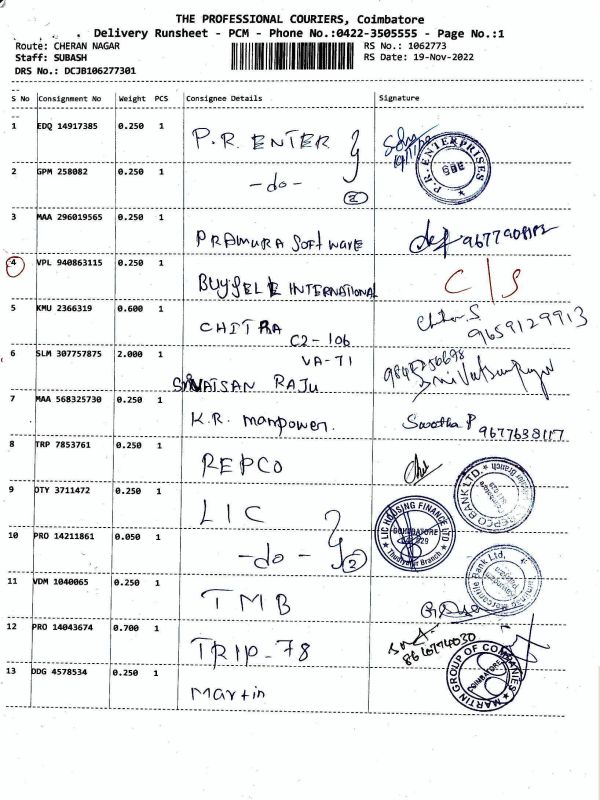 THE PROFESSIONAL COURIERS, Coimbatore
Delivery Runsheet - PCM - Phone No.:0422-3505555 - Page No.:1
Route: CHERAN NAGAR
RS No.: 1062773
Staff: SUBASH
RS Date: 19-Nov-2022
DRS No.: DCJB106277301
S No Consignment No Weight PCS Consignee Details Signature
1 EDQ 14917385 0.250 1 P.R. ENTER
P.R. ENTERPRISES
2 GPM 258082 0.250 1 -do- 2
3 MAA 296019565 0.250 1 PRAMURA Software
4 VPL 940863115 0.250 1 BUYSELL INTERNATIONAL C/S
5 KMU 2366319 0.600 1 CHITRA C2-106 9659129913
6 SLM 307757875 2.000 1 VA-71
SRIVATSAN RAJU
7 MAA 568325730 0.250 1 K.R. manpower. Swetha P 9677638117
8 TRP 7853761 0.250 1 REPCO
REPCO BANK LTD.
9 OTY 3711472 0.250 1 LIC
LIC HOUSING FINANCE LTD
COIMBATORE
10 PRO 14211861 0.050 1 -do- 2
11 VDM 1040065 0.250 1 TMB
Mercantile Bank Ltd,
12 PRO 14043674 0.700 1 TRIP-78
13 DDG 4578534 0.250 1 Martin
MARTIN GROUP OF COMPANIES
COIMBATORE